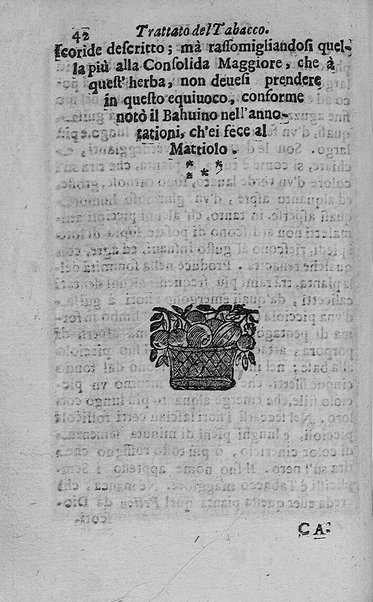 42 Trattato del Tabacco.
ſcoride deſcritto; mà raſſomigliandoſi quel-
la più alla Conſolida Maggiore, che à
queſt' herba, non deueſi prendere
in queſto equiuoco, conforme
notò il Bahuino nell'anno-
tationi, ch'ei fece al
Mattiolo.
CA.